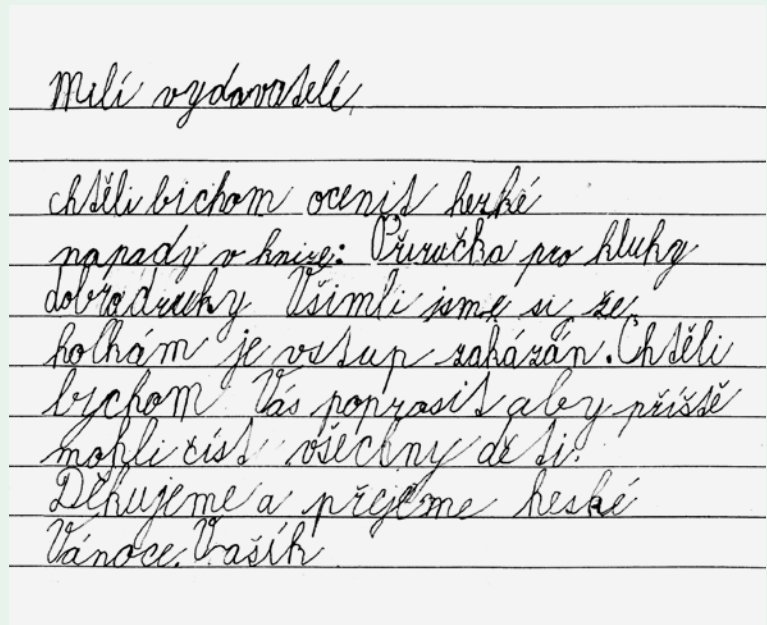 Milí vydavatelé,
chtěli bichom ocenit herké
napady v knize: Příručka pro kluky
dobrodruhy Všimli jsme si že
holkám je vstup zakázán. Chtěli
bychom Vás poprosit aby příště
mohli číst všechny děti.
Děkujeme a přejeme heské
Vánoce. Vašík